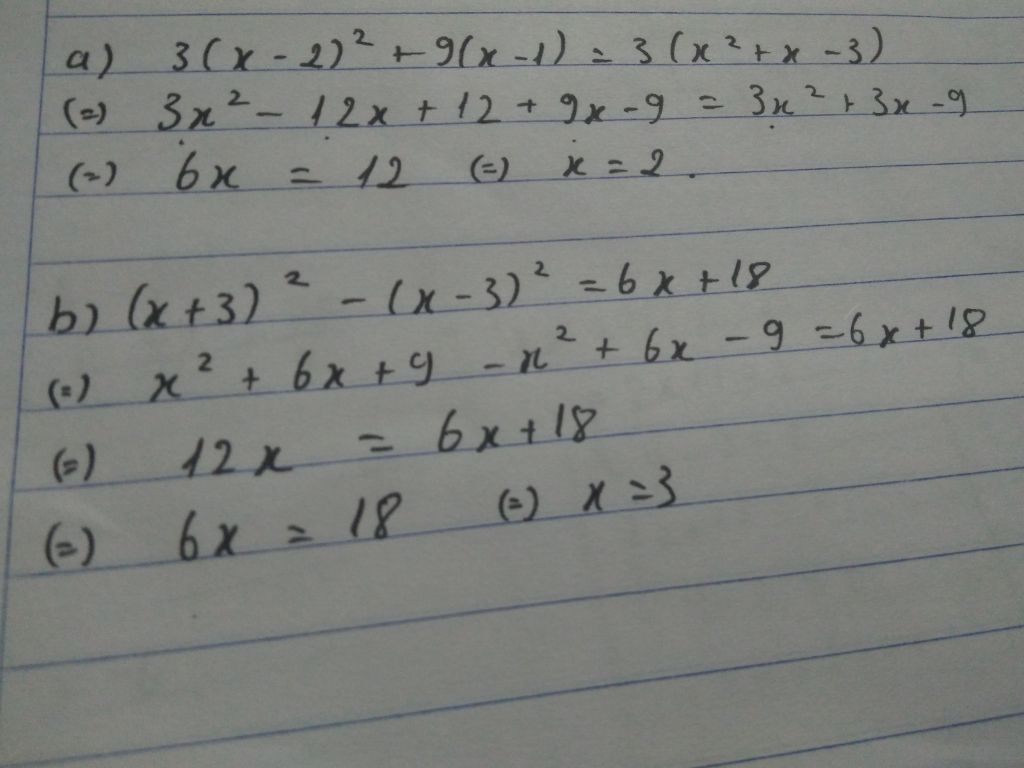 a) 3(x - 2)² + 9(x - 1) = 3(x² + x - 3)
(=) 3x² - 12x + 12 + 9x - 9 = 3x² + 3x - 9
(=) 6x = 12 (=) x = 2.
b) (x + 3)² - (x - 3)² = 6x + 18
(=) x² + 6x + 9 - x² + 6x - 9 = 6x + 18
(=) 12x = 6x + 18
(=) 6x = 18 (=) x = 3